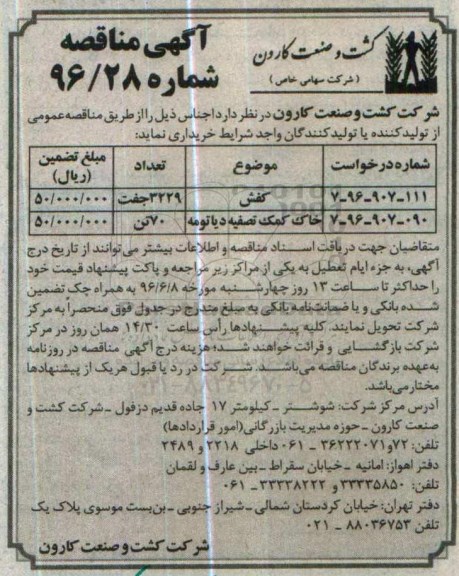 آگهی مناقصه
شماره ۹۶/۲۸
کشت و صنعت کارون
(شرکت سهامی خاص)
شرکت کشت و صنعت کارون در نظر دارد اجناس ذیل را از طریق مناقصه عمومی
از تولیدکننده یا تولیدکنندگان واجد شرایط خریداری نماید:
شماره درخواست موضوع تعداد مبلغ تضمین (ریال)
۷-۹۶-۹۰۷-۱۱۱ کفش ۳۲۲۹جفت ۵۰/۰۰۰/۰۰۰
۷-۹۶-۹۰۷-۰۹۰ خاک کمک تصفیه دیاتومه ۷۰تن ۵۰/۰۰۰/۰۰۰
متقاضیان جهت دریافت اسناد مناقصه و اطلاعات بیشتر می‌توانند از تاریخ درج
آگهی، به جزء ایام تعطیل به یکی از مراکز زیر مراجعه و پاکت پیشنهاد قیمت خود
را حداکثر تا ساعت ۱۳ روز چهارشنبه مورخه ۹۶/۶/۸ به همراه چک تضمین
شده بانکی و یا ضمانتنامه بانکی به مبلغ مندرج در جدول فوق منحصراً به مرکز
شرکت تحویل نمایند. کلیه پیشنهادها رأس ساعت ۱۴/۳۰ همان روز در مرکز
شرکت بازگشایی و قرائت خواهند شد؛ هزینه درج آگهی مناقصه در روزنامه
به‌عهده برندگان مناقصه می‌باشد. شرکت در رد یا قبول هریک از پیشنهادها
مختار می‌باشد.
آدرس مرکز شرکت: شوشتر ـ کیلومتر ۱۷ جاده قدیم دزفول ـ شرکت کشت و
صنعت کارون ـ حوزه مدیریت بازرگانی(امور قراردادها)
تلفن: ۷۲و۳۶۲۲۲۰۷۱ ـ ۰۶۱ داخلی ۲۲۱۸ و ۲۴۸۹
دفتر اهواز: امانیه ـ خیابان سقراط ـ بین عارف و لقمان
تلفن: ۳۳۳۳۵۸۵۰ و ۳۳۳۳۸۲۲۲ ـ ۰۶۱
دفتر تهران: خیابان کردستان شمالی ـ شیراز جنوبی ـ بن‌بست موسوی پلاک یک
تلفن ۸۸۰۳۶۷۵۳ ـ ۰۲۱
شرکت کشت و صنعت کارون